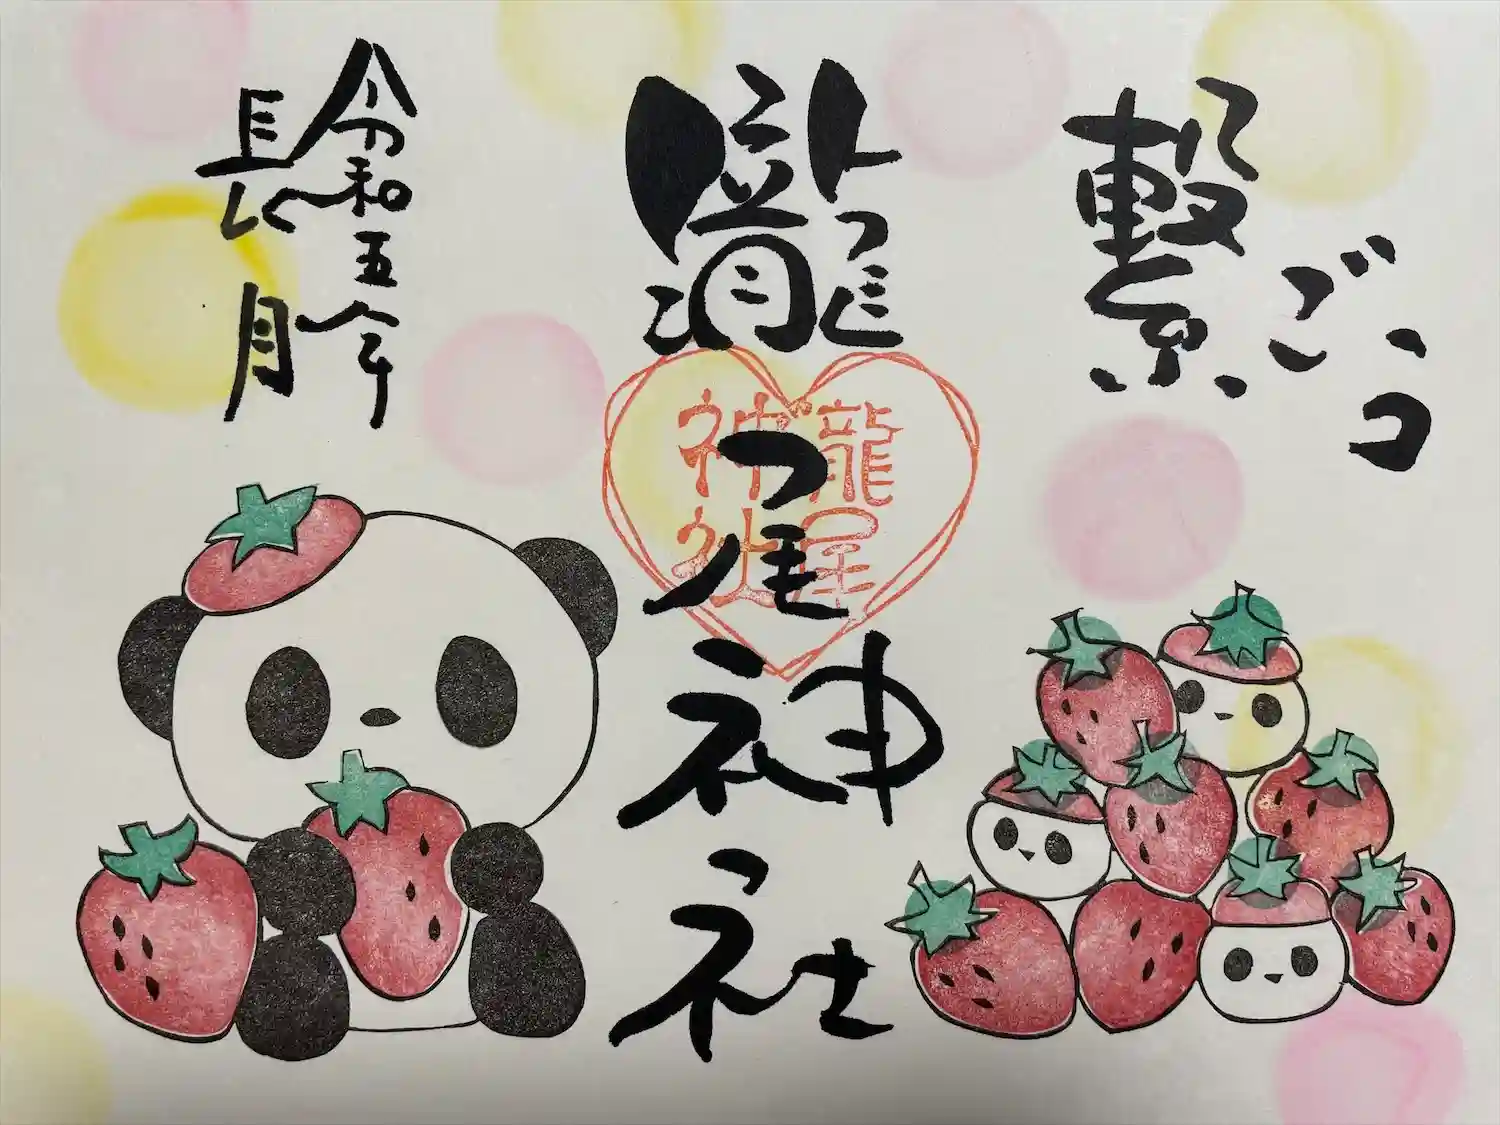 繋
龍尾神社
令和五年
長月
龍尾
神社